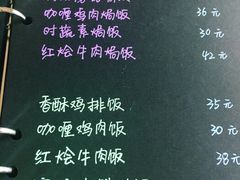 焗饭
咖喱鸡肉焗饭 36元
时蔬素焗饭 30元
红烩牛肉焗饭 42元
香酥鸡排饭 35元
咖喱鸡肉饭 30元
红烩牛肉饭 38元